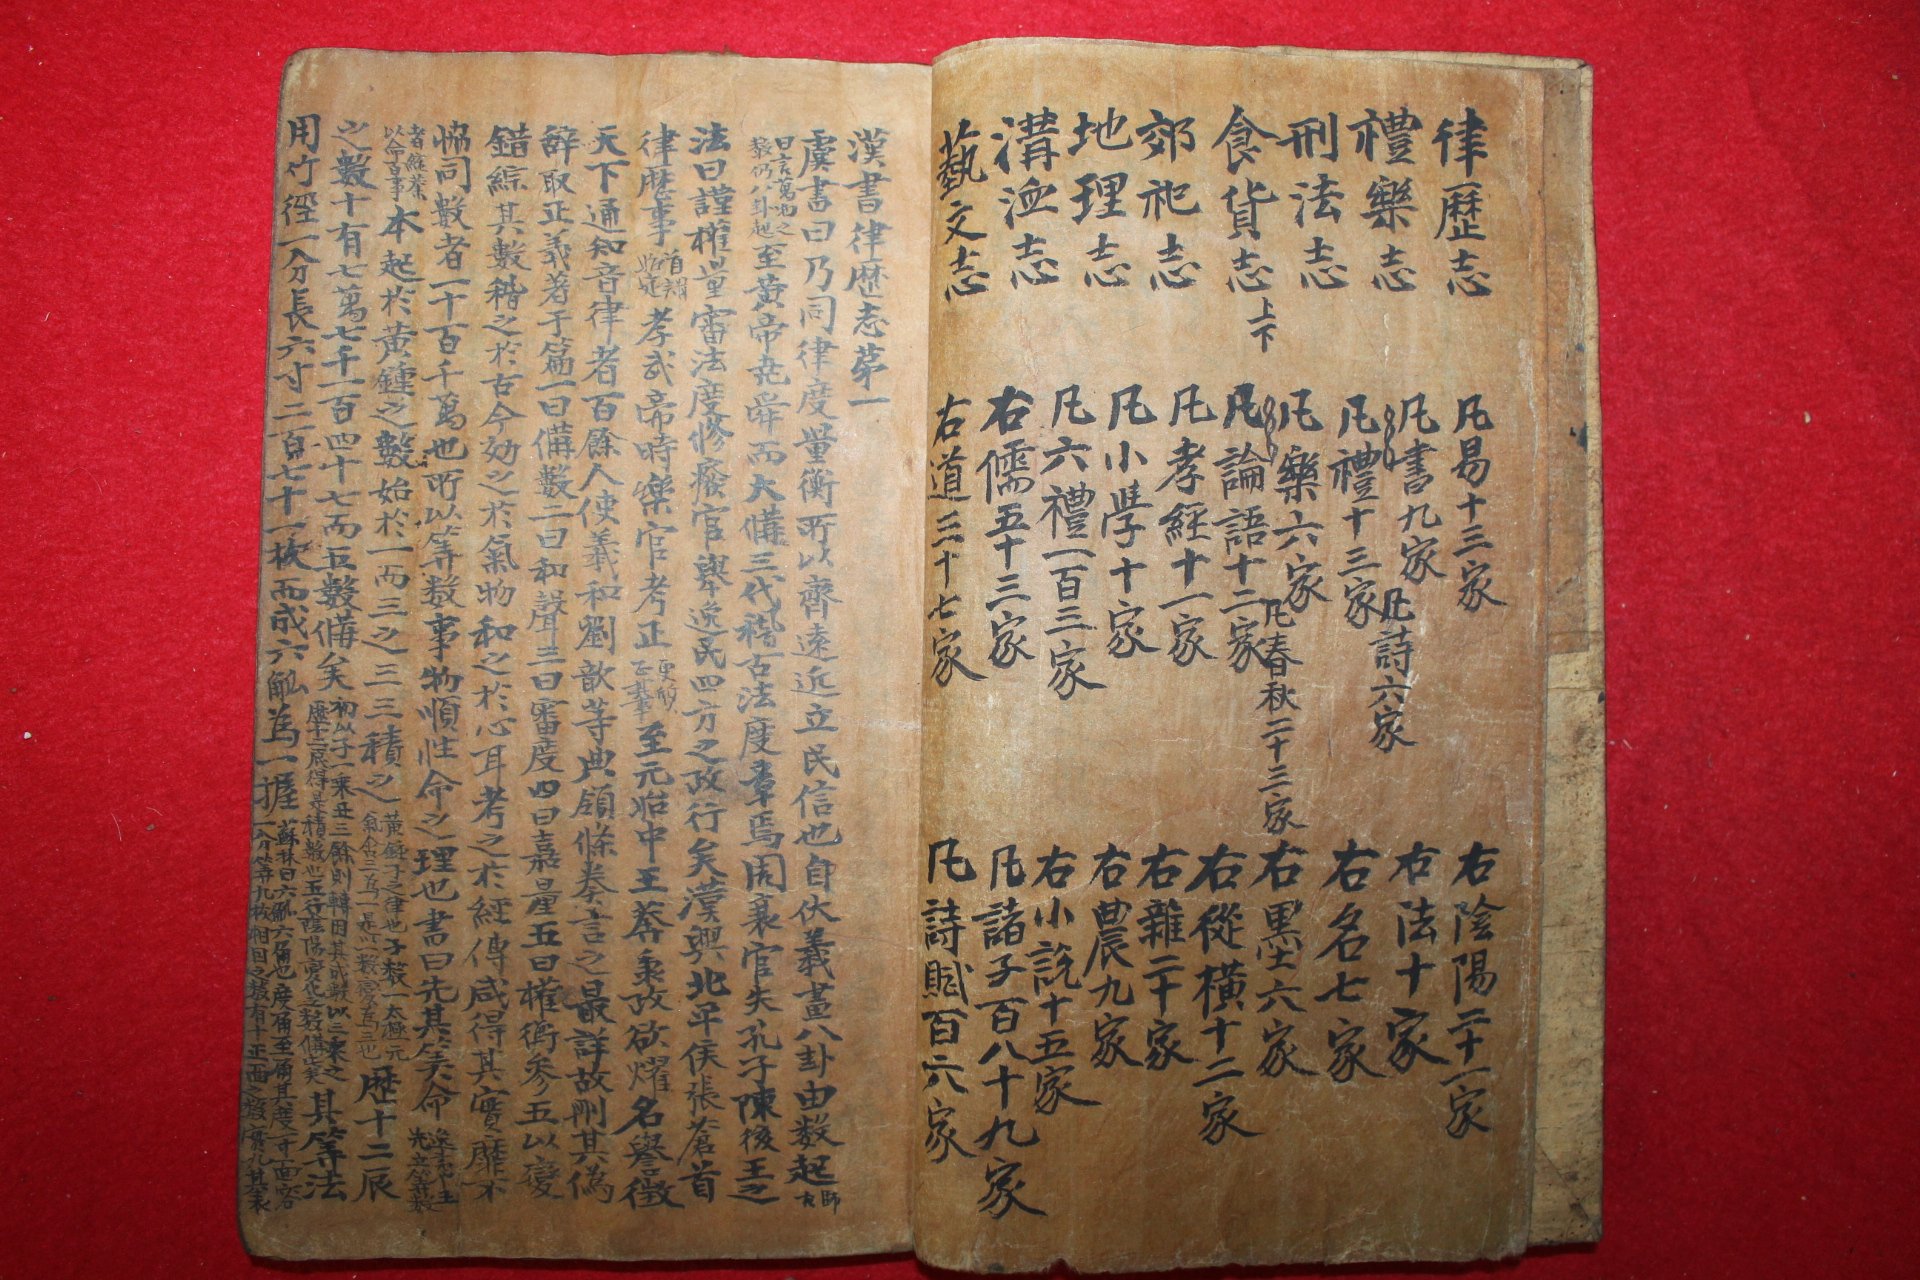 律歷志
禮樂志
刑法志
食貨志上下
郊祀志
地理志
溝洫志
藝文志
凡易十三家
凡書九家
凡詩六家
凡禮十三家
凡樂六家
凡春秋二十三家
凡論語十二家
凡孝經十一家
凡小學十家
凡六禮一百三家
右儒五十三家
右道三十七家
右陰陽二十一家
右法十家
右名七家
右墨六家
右從橫十二家
右雜二十家
右農九家
右小說十五家
凡諸子百八十九家
凡詩賦百六家
漢書律歷志第一
虞書曰乃同律度量衡所以齊遠近立民信也自伏羲畫八卦由數起師古
曰言萬物之數仍八卦起至黃帝堯舜而大備三代稽古法度章焉周衰官失孔子陳後王之
法曰謹權量審法度修廢官擧逸民四方之政行矣漢興北平侯張蒼首
律歷事孝武帝時樂官考正至元始中王莽秉政欲燿名譽徵
天下通知音律者百餘人使羲和劉歆等典領條奏言之最詳故刪其僞
辭取正義著于篇一曰備數二曰和聲三曰審度四曰嘉量五曰權衡參五以變
錯綜其數稽之於古今効之於氣物和之於心耳考之於經傳咸得其實靡不
協同數者一十百千萬也所以筭數事物順性命之理也書曰先其筭命
以命百事本起於黃鍾之數始於一而三之三三積之黃鍾子之律也子數一太極元氣含三爲一是以一數變爲三也歷十二辰
之數十有七萬七千一百四十七而五數備矣初以子一乘丑三餘則轉因其成數以三乘之歷十二辰得是積數也五行陰陽變化之數備矣其筭法
用竹徑一分長六寸二百七十一枚而成六觚爲一握